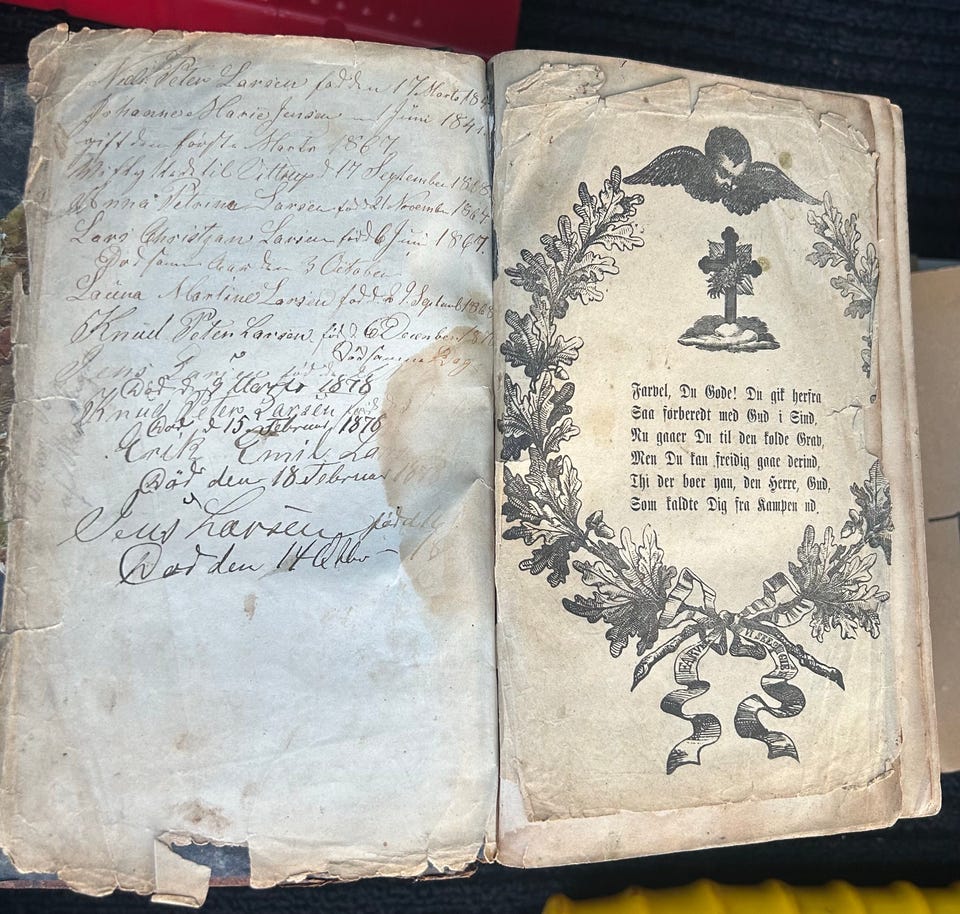 Niels Peter Larsen född den 17 Marts 184
Johanne Marie Jensen — Juni 1841
gift den første Marts 1867
til Vittrup d 17 September 1868
Anna Petrina Larsen född 21 November 1864
Lars Christjan Larsen född 6 Juni 1867.
Död samme Aar den 3 October
Laüna Martine Larsen född d 9 September 1868
Knud Peter Larsen född 6 December
Död samme Dag
Jens Larsen född
Död d 9 Marts 1878
Knud Peter Larsen född
Död d 15 Februar 1878
Erik Emil La
Död den 18 Februar
Jens Larsen född d
Död den 14
Farvel, Du Gode! Du gik herfra
Saa forberedt med Gud i Sind,
Nu gaaer Du til den kolde Grav,
Men Du kan freidig gaae derind,
Thi der boer han, den Herre, Gud,
Som kaldte Dig fra Kampen ud.